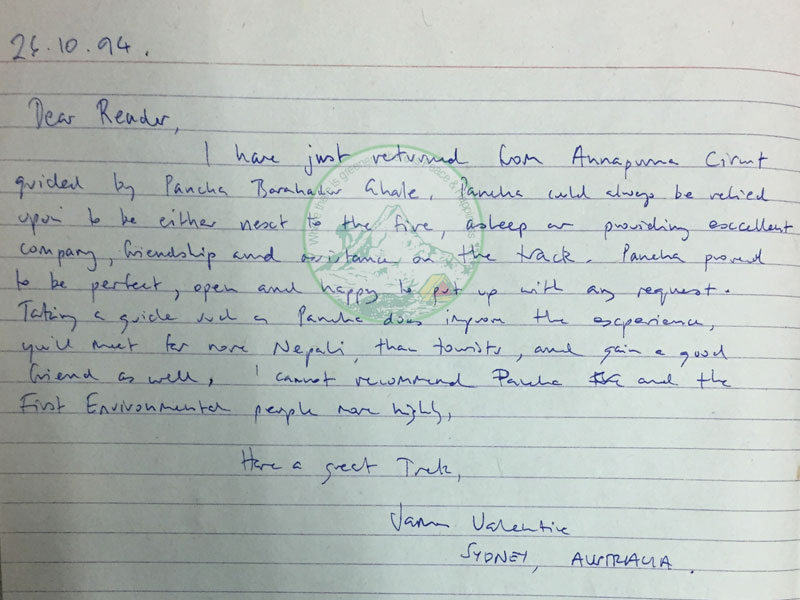 26.10.94.
Dear Reader,
I have just returned from Annapurna Circuit
guided by Pancha Barahadur Ghale. Pancha could always be relied
upon to be either next to the fire, asleep or providing excellent
company, friendship and assistance on the track. Pancha proved
to be perfect, open and happy to put up with any request.
Taking a guide such as Pancha does improve the experience,
you'll meet far more Nepali, than tourists, and gain a good
friend as well, I cannot recommend Pancha and the
First Environmental people more highly,
Have a great Trek,
Valentine
SYDNEY, AUSTRALIA.